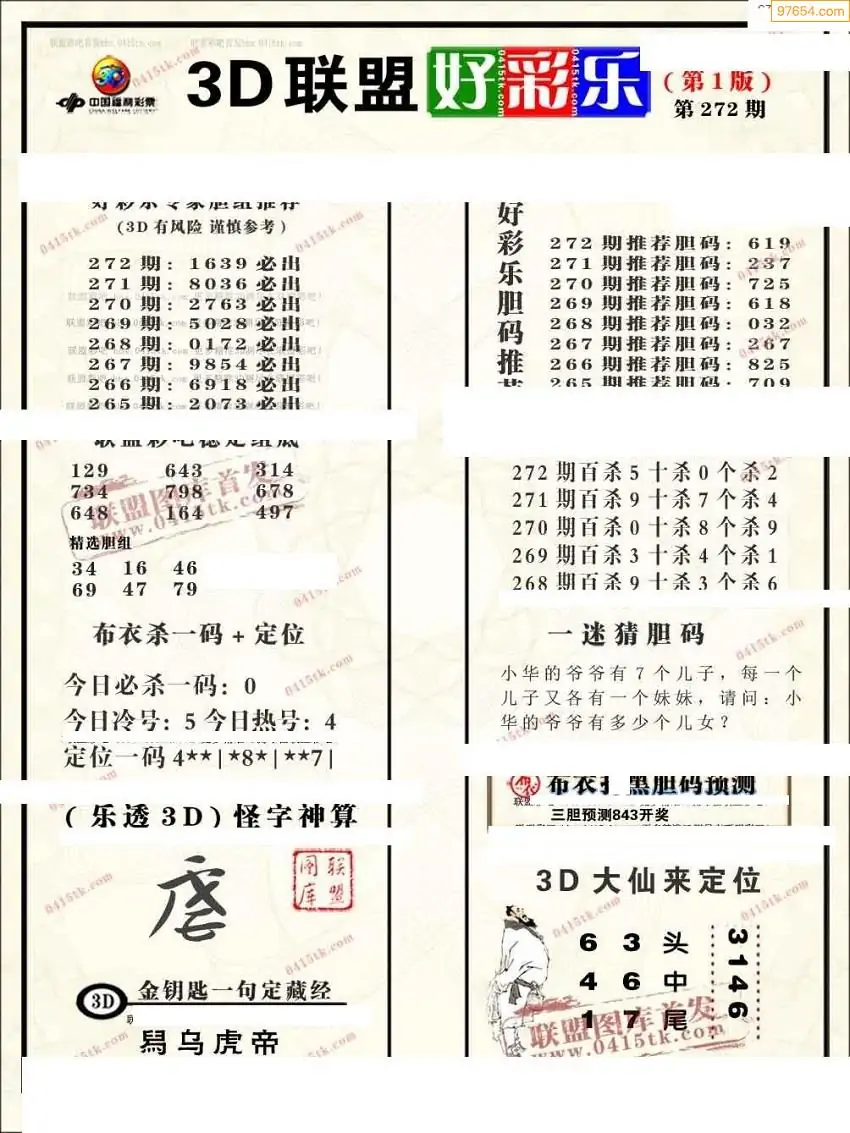 97654.com
中国福利彩票
CHINA WELFARE LOTTERY
3D联盟好彩乐
(第1版)
第272期
好彩乐专家胆组推荐
(3D有风险 谨慎参考)
272期: 1639必出
271期: 8036必出
270期: 2763必出
269期: 5028必出
268期: 0172必出
267期: 9854必出
266期: 6918必出
265期: 2073必出
好彩乐胆码推荐
272期推荐胆码: 619
271期推荐胆码: 237
270期推荐胆码: 725
269期推荐胆码: 618
268期推荐胆码: 032
267期推荐胆码: 267
266期推荐胆码: 825
265期推荐胆码: 709
联盟彩吧稳定组底
129 643 314
734 798 678
648 164 497
精选胆组
34 16 46
69 47 79
272期百杀5十杀0个杀2
271期百杀9十杀7个杀4
270期百杀0十杀8个杀9
269期百杀3十杀4个杀1
268期百杀9十杀3个杀6
布衣杀一码+定位
今日必杀一码: 0
今日冷号: 5 今日热号: 4
定位一码 4**|*8*|**7|
一迷猜胆码
小华的爷爷有7个儿子，每一个
儿子又各有一个妹妹，请问：小
华的爷爷有多少个儿女？
三胆预测843开奖
(乐透3D)怪字神算
联盟图库
3D
金钥匙一句定藏经
乌虎帝
3D大仙来定位
6 3 头
4 6 中
1 7 尾
3146
联盟图库首发
www.0415tk.com
0415tk.com